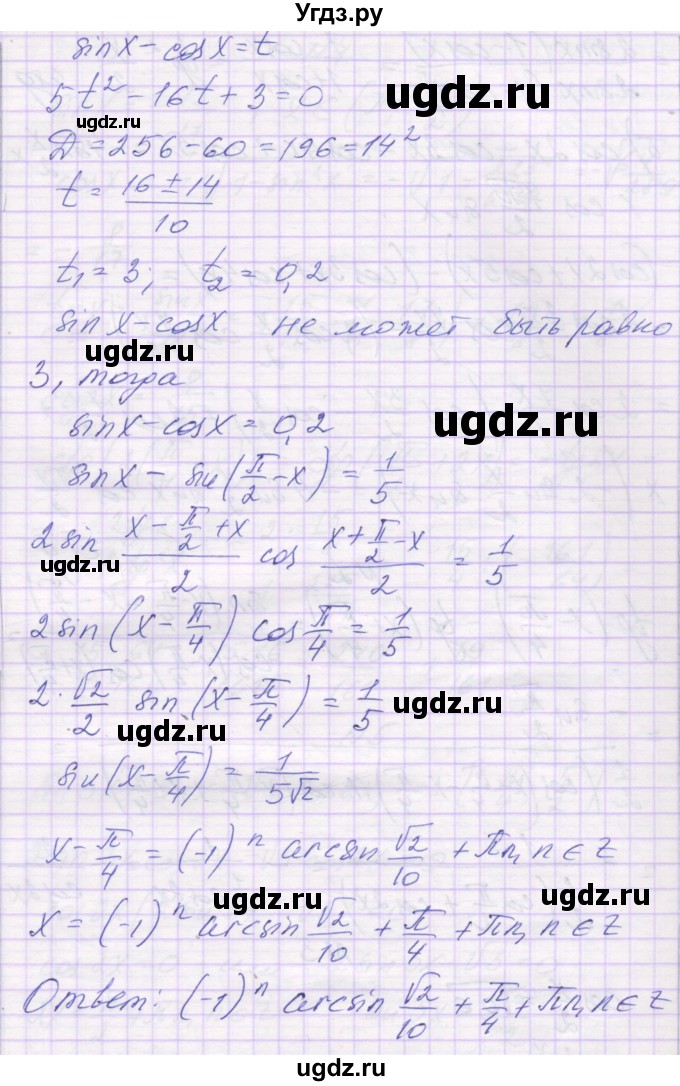 Угдз.ру
sin x - cos x = t
5t² - 16t + 3 = 0
ugdz.ru
ugdz.ru
Д = 256 - 60 = 196 = 14²
t = (16 ± 14)/10
t₁ = 3; t₂ = 0,2
sin x - cos x не может быть равно
ugdz.ru
3, тогда
ugdz.ru
sin x - cos x = 0,2
sin x - sin(π/2 - x) = 1/5
2 sin (x - π/2 + x)/2 cos (x + π/2 - x)/2 = 1/5
ugdz.ru
2 sin(x - π/4) cos π/4 = 1/5
2 · √2/2 sin(x - π/4) = 1/5
ugdz.ru
ugdz.ru
sin(x - π/4) = 1/(5√2)
x - π/4 = (-1)ⁿ arcsin √2/10 + πn, n ∈ Z
ugdz.ru
ugdz.ru
x = (-1)ⁿ arcsin √2/10 + π/4 + πn, n ∈ Z
Ответ: (-1)ⁿ arcsin √2/10 + π/4 + πn, n ∈ Z
ugdz.ru
ugdz.ru